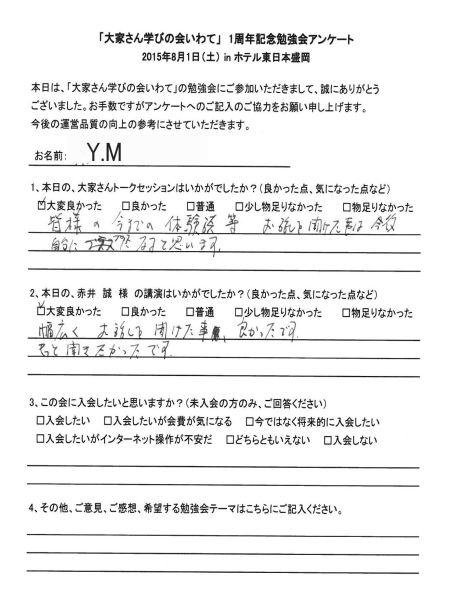 「大家さん学びの会いわて」 1周年記念勉強会アンケート
2015年8月1日(土) in ホテル東日本盛岡
本日は、「大家さん学びの会いわて」の勉強会にご参加いただきまして、誠にありがとう
ございました。お手数ですがアンケートへのご記入のご協力をお願い申し上げます。
今後の運営品質の向上の参考にさせていただきます。
お名前: Y.M
1、本日の、大家さんトークセッションはいかがでしたか?(良かった点、気になった点など)
☑大変良かった □良かった □普通 □少し物足りなかった □物足りなかった
皆様の今までの体験談等 お話しも聞けた事は今後
自分にプラスになると思います。
2、本日の、赤井 誠 様 の講演はいかがでしたか?(良かった点、気になった点など)
☑大変良かった □良かった □普通 □少し物足りなかった □物足りなかった
幅広く お話しも聞けた事、良かったです。
もっと聞きたかったです。
3、この会に入会したいと思いますか?(未入会の方のみ、ご回答ください)
□入会したい □入会したいが会費が気になる □今ではなく将来的に入会したい
□入会したいがインターネット操作が不安だ □どちらともいえない □入会しない
4、その他、ご意見、ご感想、希望する勉強会テーマはこちらにご記入ください。